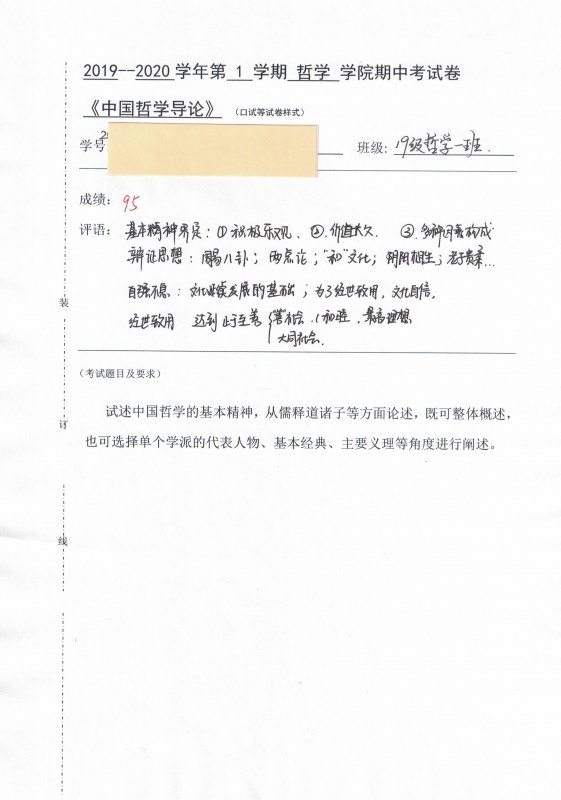 2019--2020 学年第 1 学期 哲学 学院期中考试卷
《中国哲学导论》 （口试等试卷样式）
学号: 班级: 19级哲学一班.
成绩: 95
评语: 基本精神界定: ①积极乐观、②.价值大久. ③多种因素构成
辩证思想: 周易八卦; 两点论; "和"文化; 阴阳相生; 老子贵柔...
自强不息: 文化延续发展的基础; 为了经世致用, 文化自信.
经世致用 达到止于至善 社会. 和睦. 最高理想
大同社会.
（考试题目及要求）
试述中国哲学的基本精神，从儒释道诸子等方面论述，既可整体概述，
也可选择单个学派的代表人物、基本经典、主要义理等角度进行阐述。
装
订
线